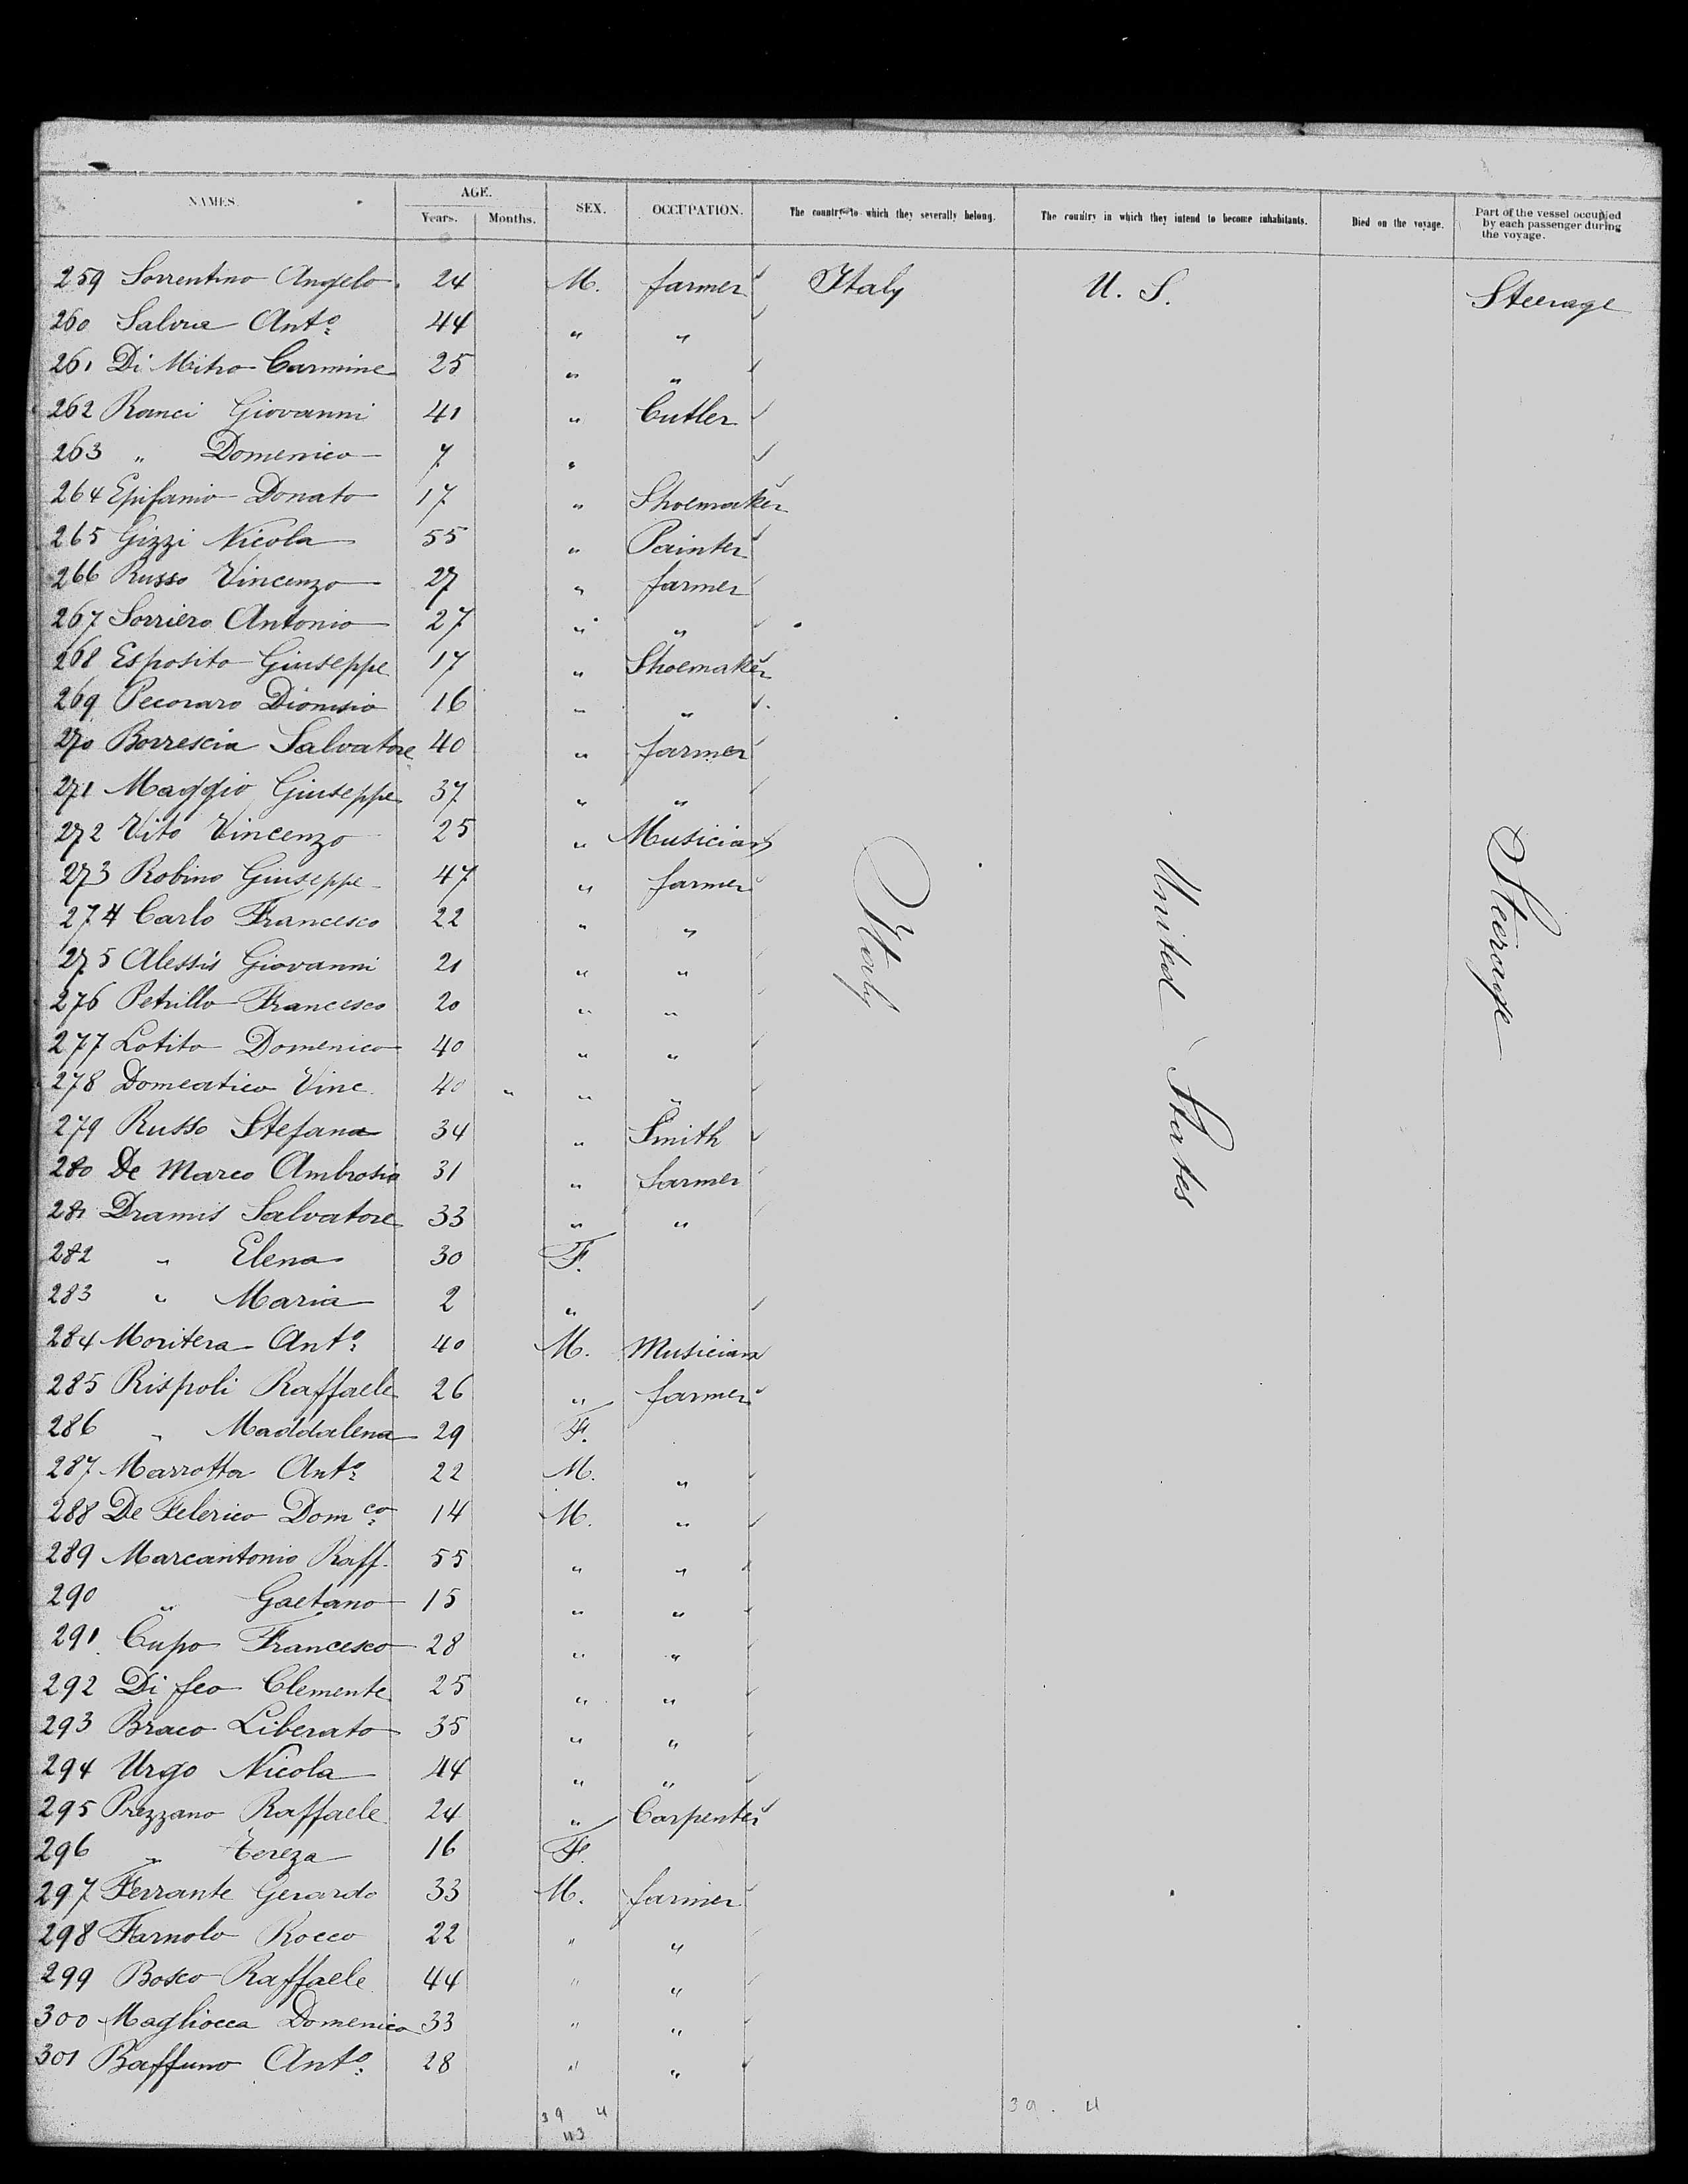 NAMES. AGE. SEX. OCCUPATION. The country to which they severally belong. The country in which they intend to become inhabitants. Died on the voyage. Part of the vessel occupied by each passenger during the voyage.
Years. Months.
259 Sorrentino Angelo 24 M. farmer Italy U. S. Steerage
260 Salvia Anto 44 " "
261 Di Mitro Carmine 25 " "
262 Ranci Giovanni 41 " Cutler
263 " Domenico 7 "
264 Epifanio Donato 17 " Shoemaker
265 Gizzi Nicola 55 " Painter
266 Russo Vincenzo 27 " farmer
267 Sorriero Antonio 27 " "
268 Esposito Giuseppe 17 " Shoemaker
269 Pecoraro Dionisio 16 " "
270 Borrescia Salvatore 40 " farmer
271 Maggio Giuseppe 37 " "
272 Vito Vincenzo 25 " Musician
273 Robino Giuseppe 47 " farmer
274 Carlo Francesco 22 " "
275 Alessis Giovanni 21 " "
276 Petrillo Francesco 20 " "
277 Lotito Domenico 40 " "
278 Domeatico Vinc. 40 " " "
279 Russo Stefano 34 " Smith
280 De Marco Ambrosio 31 " farmer
281 Dramis Salvatore 33 " "
282 " Elena 30 F.
283 " Maria 2 "
284 Moritera Anto 40 M. Musician
285 Rispoli Raffaele 26 " farmer
286 " Maddalena 29 F.
287 Marrotta Anto 22 M. "
288 De Felerico Domco 14 M. "
289 Marcantonio Raff. 55 " "
290 " Gaetano 15 " "
291 Cupo Francesco 28 " "
292 Di feo Clemente 25 " "
293 Braco Liberato 35 " "
294 Urgo Nicola 44 " "
295 Prezzano Raffaele 24 " Carpenter
296 " Tereza 16 F.
297 Ferrante Gerardo 33 M. farmer
298 Farnolo Rocco 22 " "
299 Bosco Raffaele 44 " "
300 Magliocca Domenico 33 " "
301 Baffuno Anto 28 " "
Italy
United States
Steerage
39 4
43
39. 4